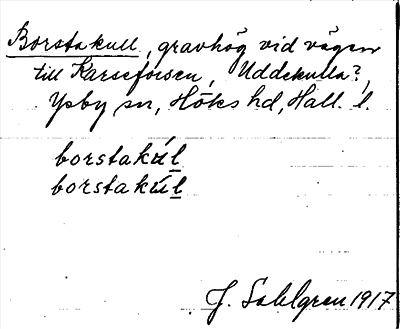 Borstakull, gravhög vid vägen
till Karseforsen, Uddekulla?,
Ysby sn, Höks hd, Hall. l.
borstakúl
borstakúl
J. Sahlgren 1917